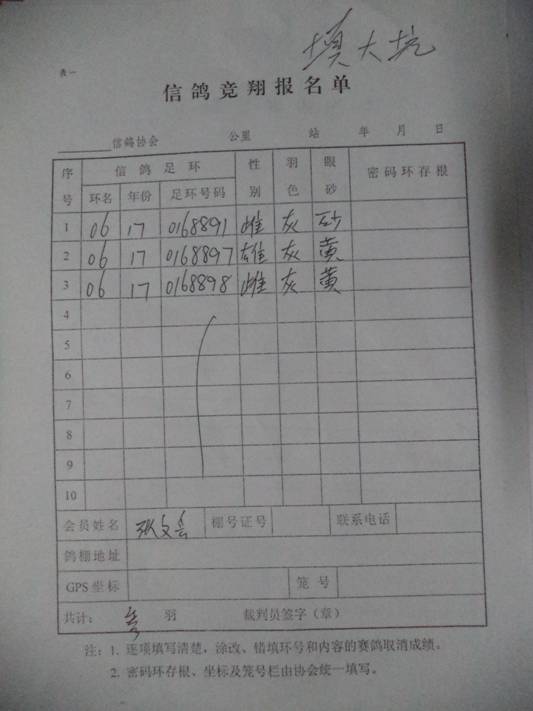 填大坑
表一
信鸽竞翔报名单
信鸽协会 公里 站 年 月 日
序号 信鸽足环 性别 羽色 眼砂 密码环存根
环名 年份 足环号码
1 06 17 0168891 雌 灰 砂
2 06 17 0168897 雄 灰 黄
3 06 17 0168898 雌 灰 黄
4
5
6
7
8
9
10
会员姓名 棚号证号 联系电话
鸽棚地址
GPS坐标 笼号
共计： 叁 羽 裁判员签字（章）
注：1. 逐项填写清楚，涂改、错填环号和内容的赛鸽取消成绩。
2. 密码环存根、坐标及笼号栏由协会统一填写。